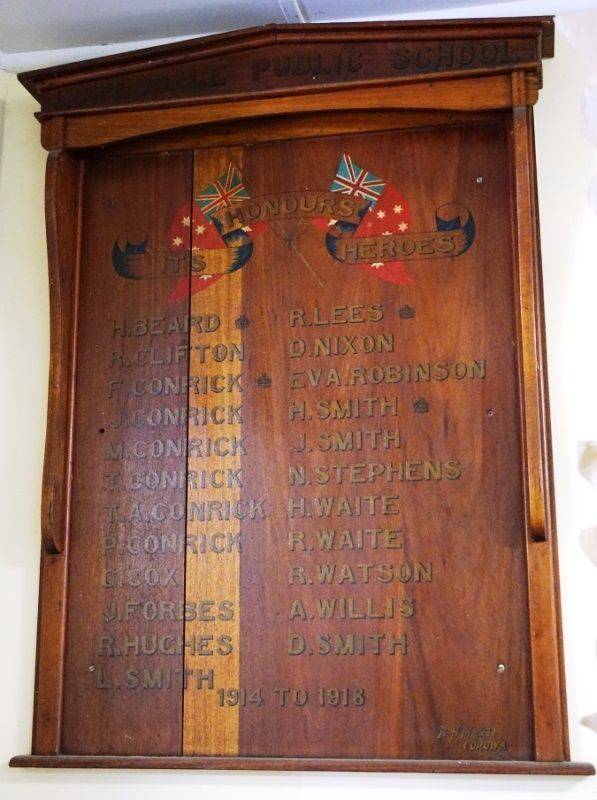 PUBLIC SCHOOL
ITS HONOURS HEROES
H.BEARD
R.CLIFTON
F.CONRICK
J.CONRICK
M.CONRICK
T.CONRICK
T.A.CONRICK
P.CONRICK
C.COX
J.FORBES
R.HUGHES
L.SMITH
R.LEES
D.NIXON
EVA.ROBINSON
H.SMITH
J.SMITH
N.STEPHENS
H.WAITE
R.WAITE
R.WATSON
A.WILLIS
D.SMITH
1914 TO 1918
COROWA